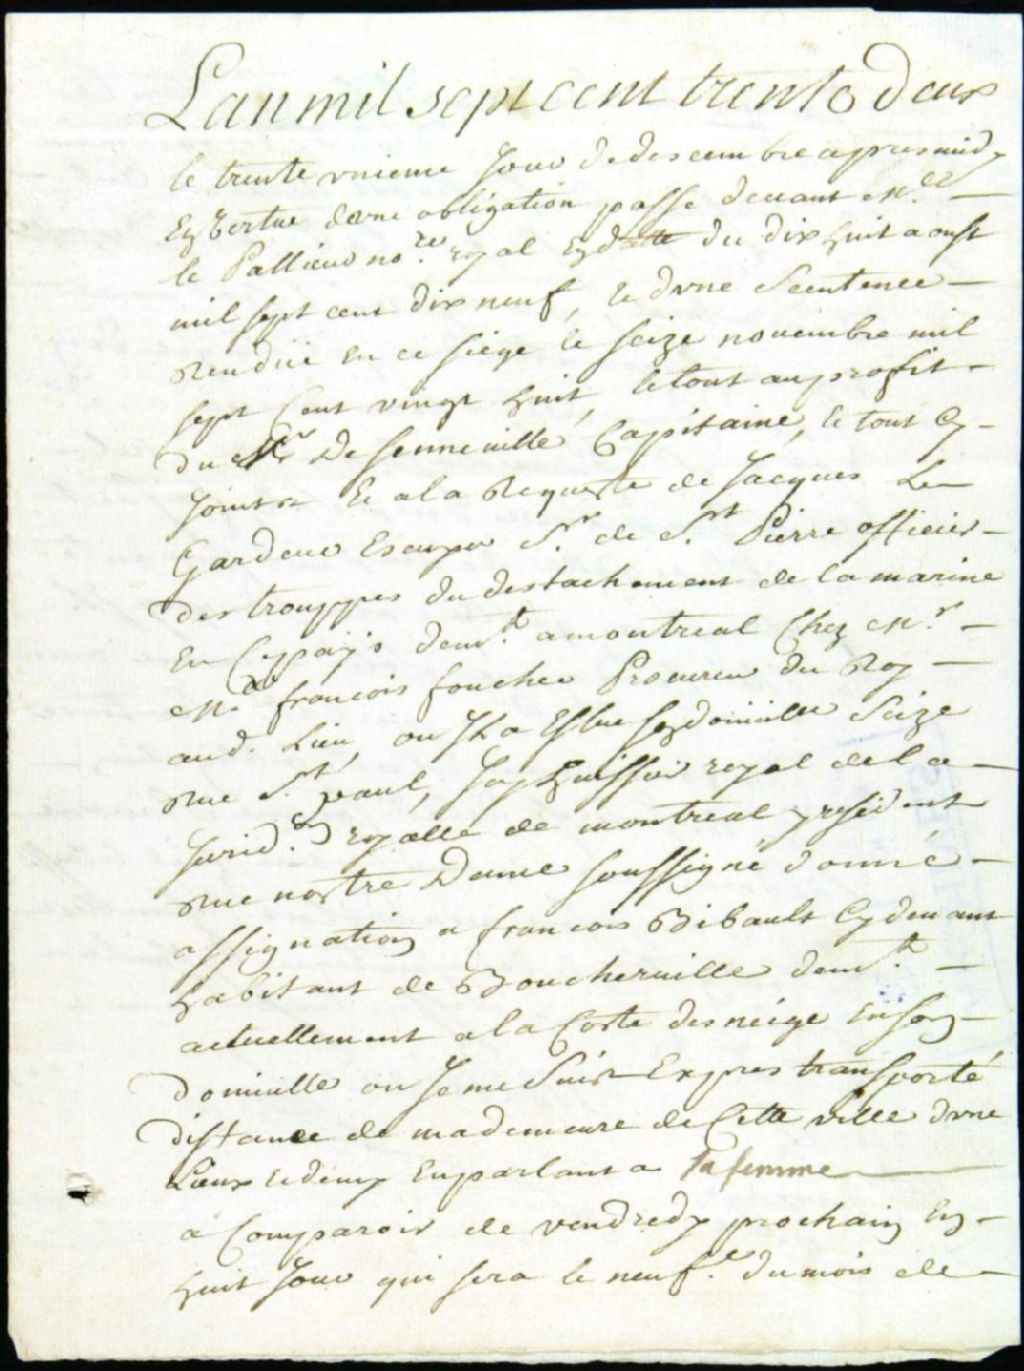 Lan mil sept cent trente Deux
le trente vnieme Jour de descembre apres midy
En Vertue dune obligation passe devant Me
le Pallieur no.re royal En datte du dix huit aoust
mil sept cent dix neuf, & dvne Sentence
Renduë En ce siege le seize novembre mil
sept Cent vingt huit, le tout au profit
du Sr De Senneville Capitaine, le tout Cy
Joint & a la Requeste de Jacques Le
Gardeur Escuyer Sr. de St. Pierre officier
des trouppes du destachement de la marine
En Ce pays dem.t a montreal Chez Mr.
Me. francois foucher Procureur du Roy
aud. Lieu, ou Il a Esleu son domicille Seize
Rue St. paul, Jay huissier royal de la
Jurid.on royalle de montreal y resident
Rue nostre Dame soussigné donné
assignation a francois Bibault Cy devant
habitant de Boucherville dem.t
actuellement a la Coste des neige En son
domicille ou Je me Suis Expres transporté
distance de ma demeure de Cette ville dvne
Lieux & demy En parlant a sa femme
a Comparoir de vendredy prochain En
huit Jour qui sera le neuf.e du mois de